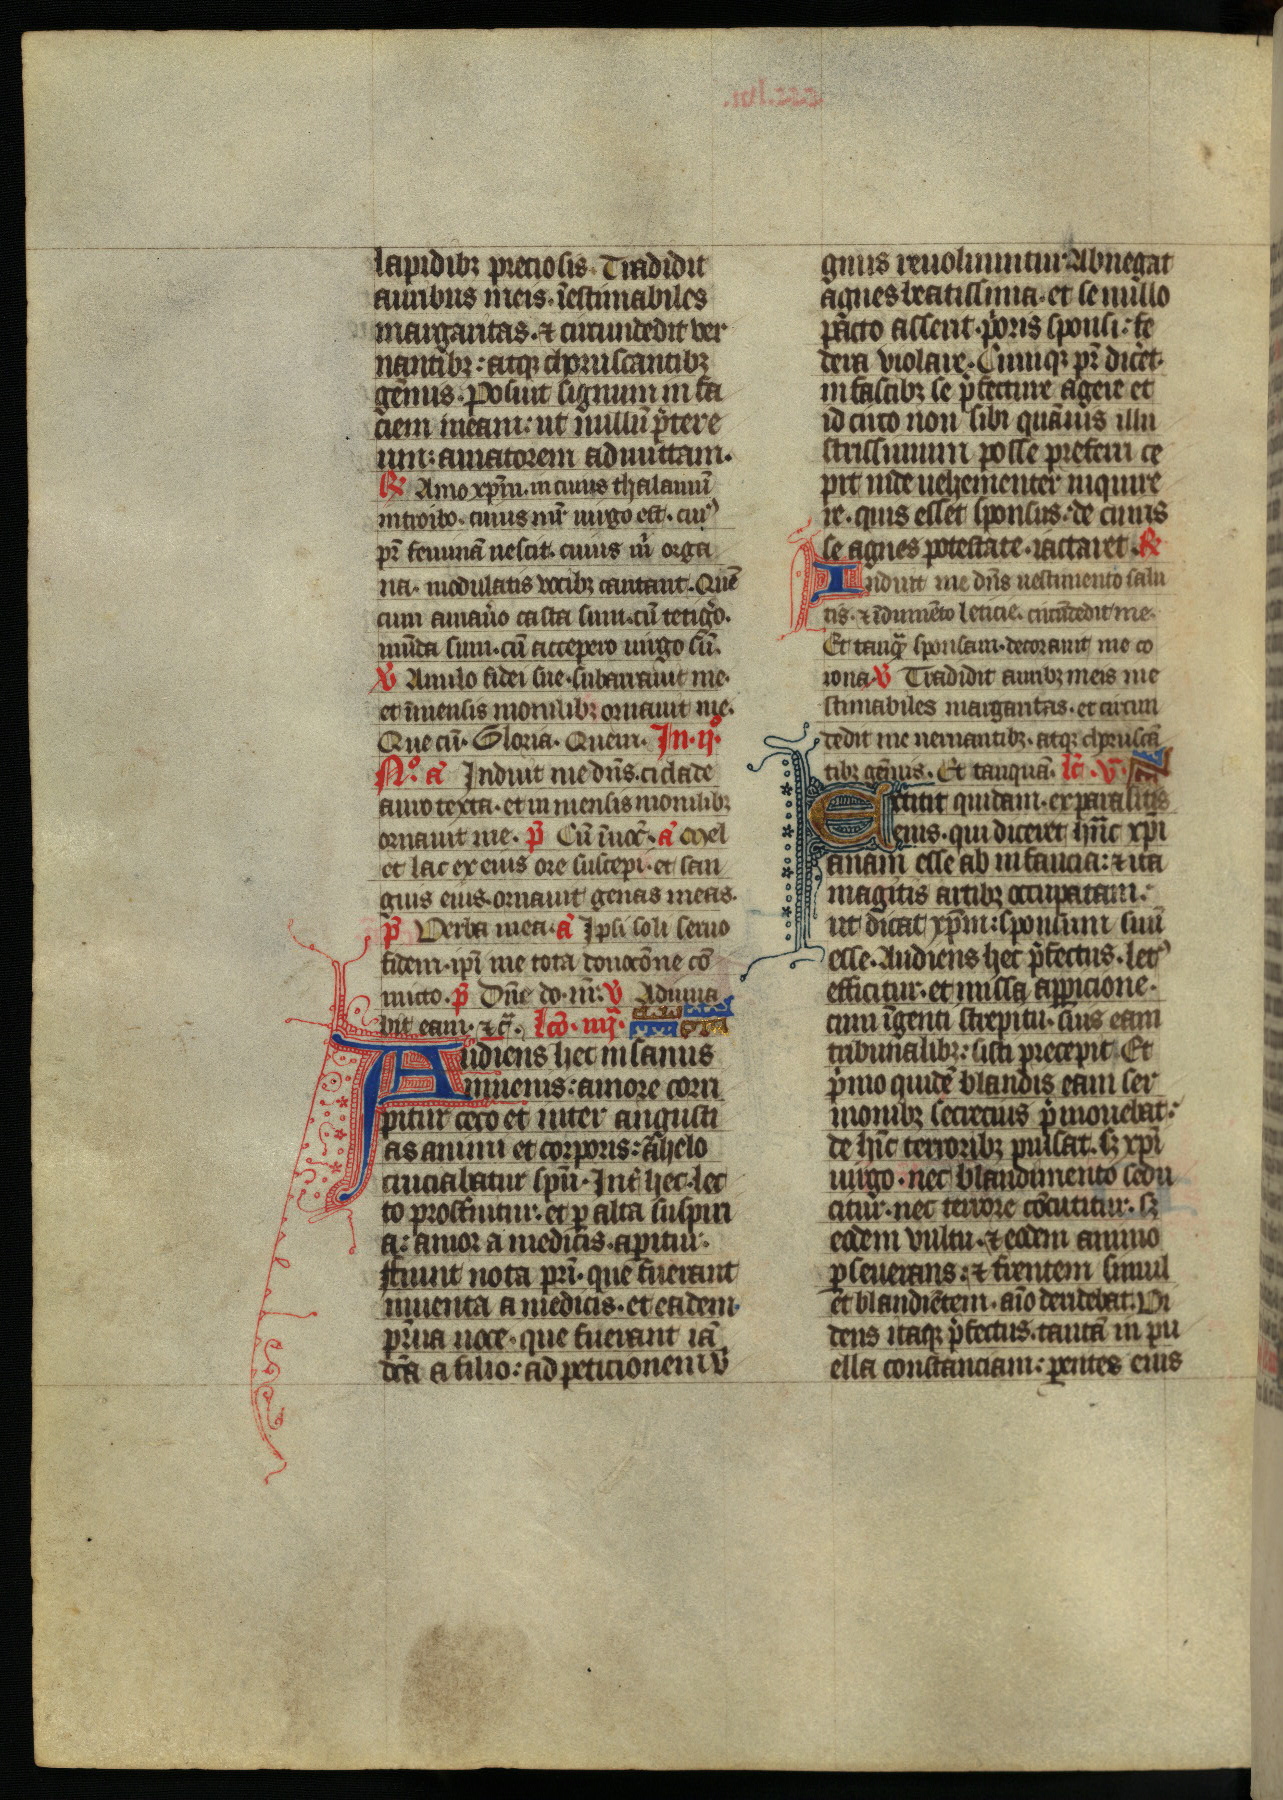 lapidibꝫ preciosis. Tradidit
auribus meis. īestimabiles
margaritas. ⁊ circumdedit ver
nantibꝫ: atqꝫ choruscantibꝫ
gēmis. Posuit signum in fa
ciem meam: ut nullū p̄tere
um: amatorem admittam.
℟ Amo xp̄m. in cuius thalamū
introibo. cuius mr̄ uirgo est. cuiꝰ
pr̄ feminā nescit. cuius m̄ orga
na. modulatis vocibꝫ cantant. Quē
cum amau̓o casta sum. cū tetig̓o.
mūda sum. cū accepero uirgo sū.
℣ Anulo fidei sue. subarrauit me.
et īmensis monilibꝫ ornauit me.
Que cū. Gloria. Quem. In. ijº.
Nº. a̓ Induit me dn̄s. ciclade
auro texta. et in mensis monilibꝫ
ornauit me. p̄ Cū īuoc̄. a̓ Mel
et lac ex eius ore suscepi. et san
guis eius. ornauit genas meas.
p̄ Verba mea. a̓ Ipsi soli seruo
fidem. ipi̓ me tota deuocōne cō
mitto. p̄ Dn̄e do. nr̄. ℣ Adiuua
bit eam. ⁊c̄. lc̄o. iiij.
Audiens hec insanus
iuuenis: amore corri
pitur ceco et inter angusti
as animi et corporis: āhelo
cruciabatur spū. Int̓ hec. lec
to prosternitur. et ꝑ alta suspiri
a: amor a medicis. aperitur.
Fiunt nota pri̓. que fuerant
inuenta a medicis. et eadem
pr̄na uoce. que fuerant iā
dc̄a a filio: ad peticionem v̓
ginis reuoluuntur. Abnegat
agnes beatissima. et se nullo
pacto asserit. p̓oris sponsi: fe
dera violare. Cumqꝫ pr̄ dic̓et.
in fascibꝫ se p̄fecture agere et
id circo non sibi quāuis illu
strissimum posse preferri ce
pit inde uehementer inquire
re. quis esset sponsus. de cuius
se agnes potestate. iactaret. ℟
Induit me dn̄s uestimento salu
tis. ⁊ īdumēto leticie. circūdedit me.
Et tanqꝫ sponsam. decorauit me co
rona. ℣ Tradidit auribꝫ meis ine
stimabiles margaritas. et circum
dedit me uernantibꝫ. atqꝫ choruscā
tibꝫ gēmis. Et tanquā. lc̄. v.
Extitit quidam. ex parasitis
eius. qui diceret hāc xpi̓
anam esse ab infancia: ⁊ ita
magicis artibꝫ occupatam:
ut dicat xp̄m: sponsum suū
esse. Audiens hec p̄fectus. letꝰ
efficitur. et missa apparicione.
cum īgenti strepitu. suis eam
tribunalibꝫ: sisti precepit. Et
p̓mo quidē blandis eam ser
monibꝫ secrecius p̓mouebat:
de hīc terroribꝫ pulsat. sꝫ xpi̓
uirgo. nec blandimento sedu
citur. nec terrore cōcutitur. sꝫ
eodem vultu. ⁊ eodem animo
ꝑseuerans: ⁊ terrentem simul
et blandiētem. aīo deridebat. Vi
dens itaqꝫ p̄fectus. tantā in pu
ella constanciam: parentes eius